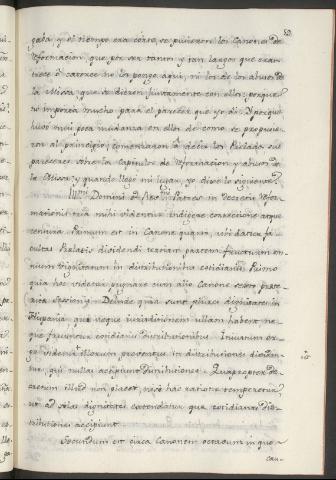 gaba, y el tiempo era corto, se pusieron los Canones de
Reformacion, que por ser tantos y tan largos que eran
trece ò catorce no los pongo aqui, ni los de los abusos de
la Missa que se dieron juntamente con ellos; porque
no importa mucho para el parecer que yo di. Y porque
huvo mui poca mudanza en ellos de como se propusie-
ron al principio; comenzaron à decir los Prelados sus
pareceres sobre los Capitulos de Reformacion y abusos de
la Missa, y quando llegó mi lugar, yo dixe lo siguiente.
Illmi Domini ac Rmi Patres in Decretis Refor-
mationis tria mihi videntur indigere correctione atque
censura. Primum est in Canone quarto, ubi datur fa-
cultas Prælatis dividendi tertiam partem fructuum om-
nium dignitatum in distributiones cotidianas. Primo
quia hoc videtur pugnare cum alio Canone sextæ præte-
ritæ Sessionis. Deinde quia sunt plures dignitates in
Hispania, quæ neque jurisdictionem ullam habent, ne-
que fruuntur cotidianis distributionibus. Invitarim er-
videns illorum præsentiam in distributiones
qui nullas accipiunt distributiones. Quapropter de-
cretum illud non placet, nisi hac ratione temperetur,
ut ad solas dignitates extendatur quæ cotidianas dis-
tributiones accipiunt.
Secundum est circa Canonem octavum in quo-
cau-